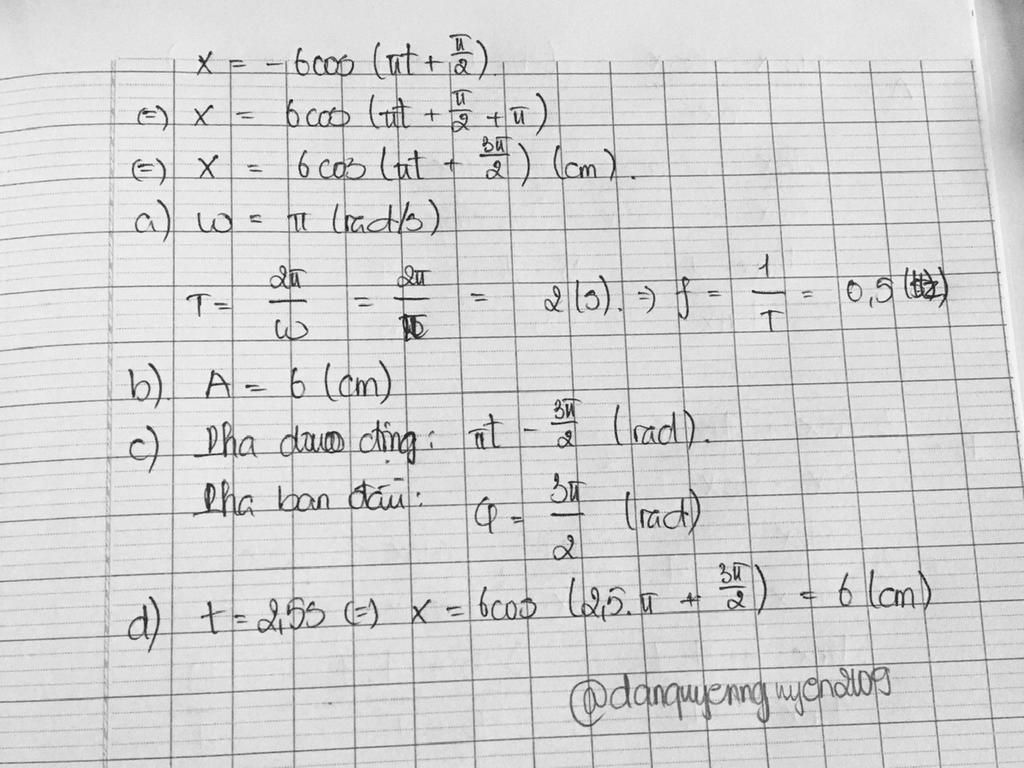 x = - 6cos (πt + π/2)
(=) x = 6cos (πt + π/2 + π)
(=) x = 6cos (πt + 3π/2) (cm).
a) ω = π (rad/s)
T = 2π/ω = 2π/π = 2 (s). => f = 1/T = 0,5 (Hz)
b). A = 6 (cm)
c) Pha dao động: πt - 3π/2 (rad).
Pha ban đầu: φ = 3π/2 (rad)
d) t = 2,5s (=) x = 6cos (2,5.π + 3π/2) = 6 (cm)
@danquyennguyen2109